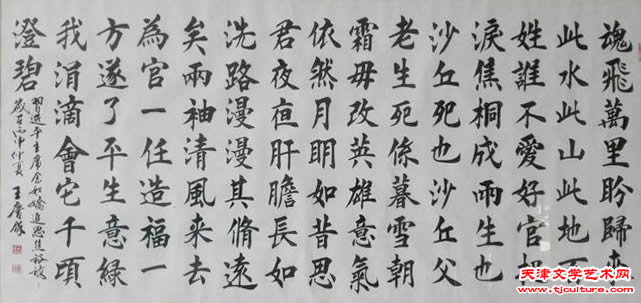 魂飛萬里盼歸來
此水此山此地百
姓誰不愛好官把
淚焦桐成雨生也
沙丘死也沙丘父
老生死係暮雪朝
霜毋改英雄意氣
依然月明如昔思
君夜夜肝膽長如
洗路漫漫其脩遠
矣兩袖清風來去
為官一任造福一
方遂了平生意綠
我涓滴會它千頃
澄碧
習近平主席念奴嬌追思焦裕祿
歲在丙申仲夏
天津文学艺术网
www.tjculture.com